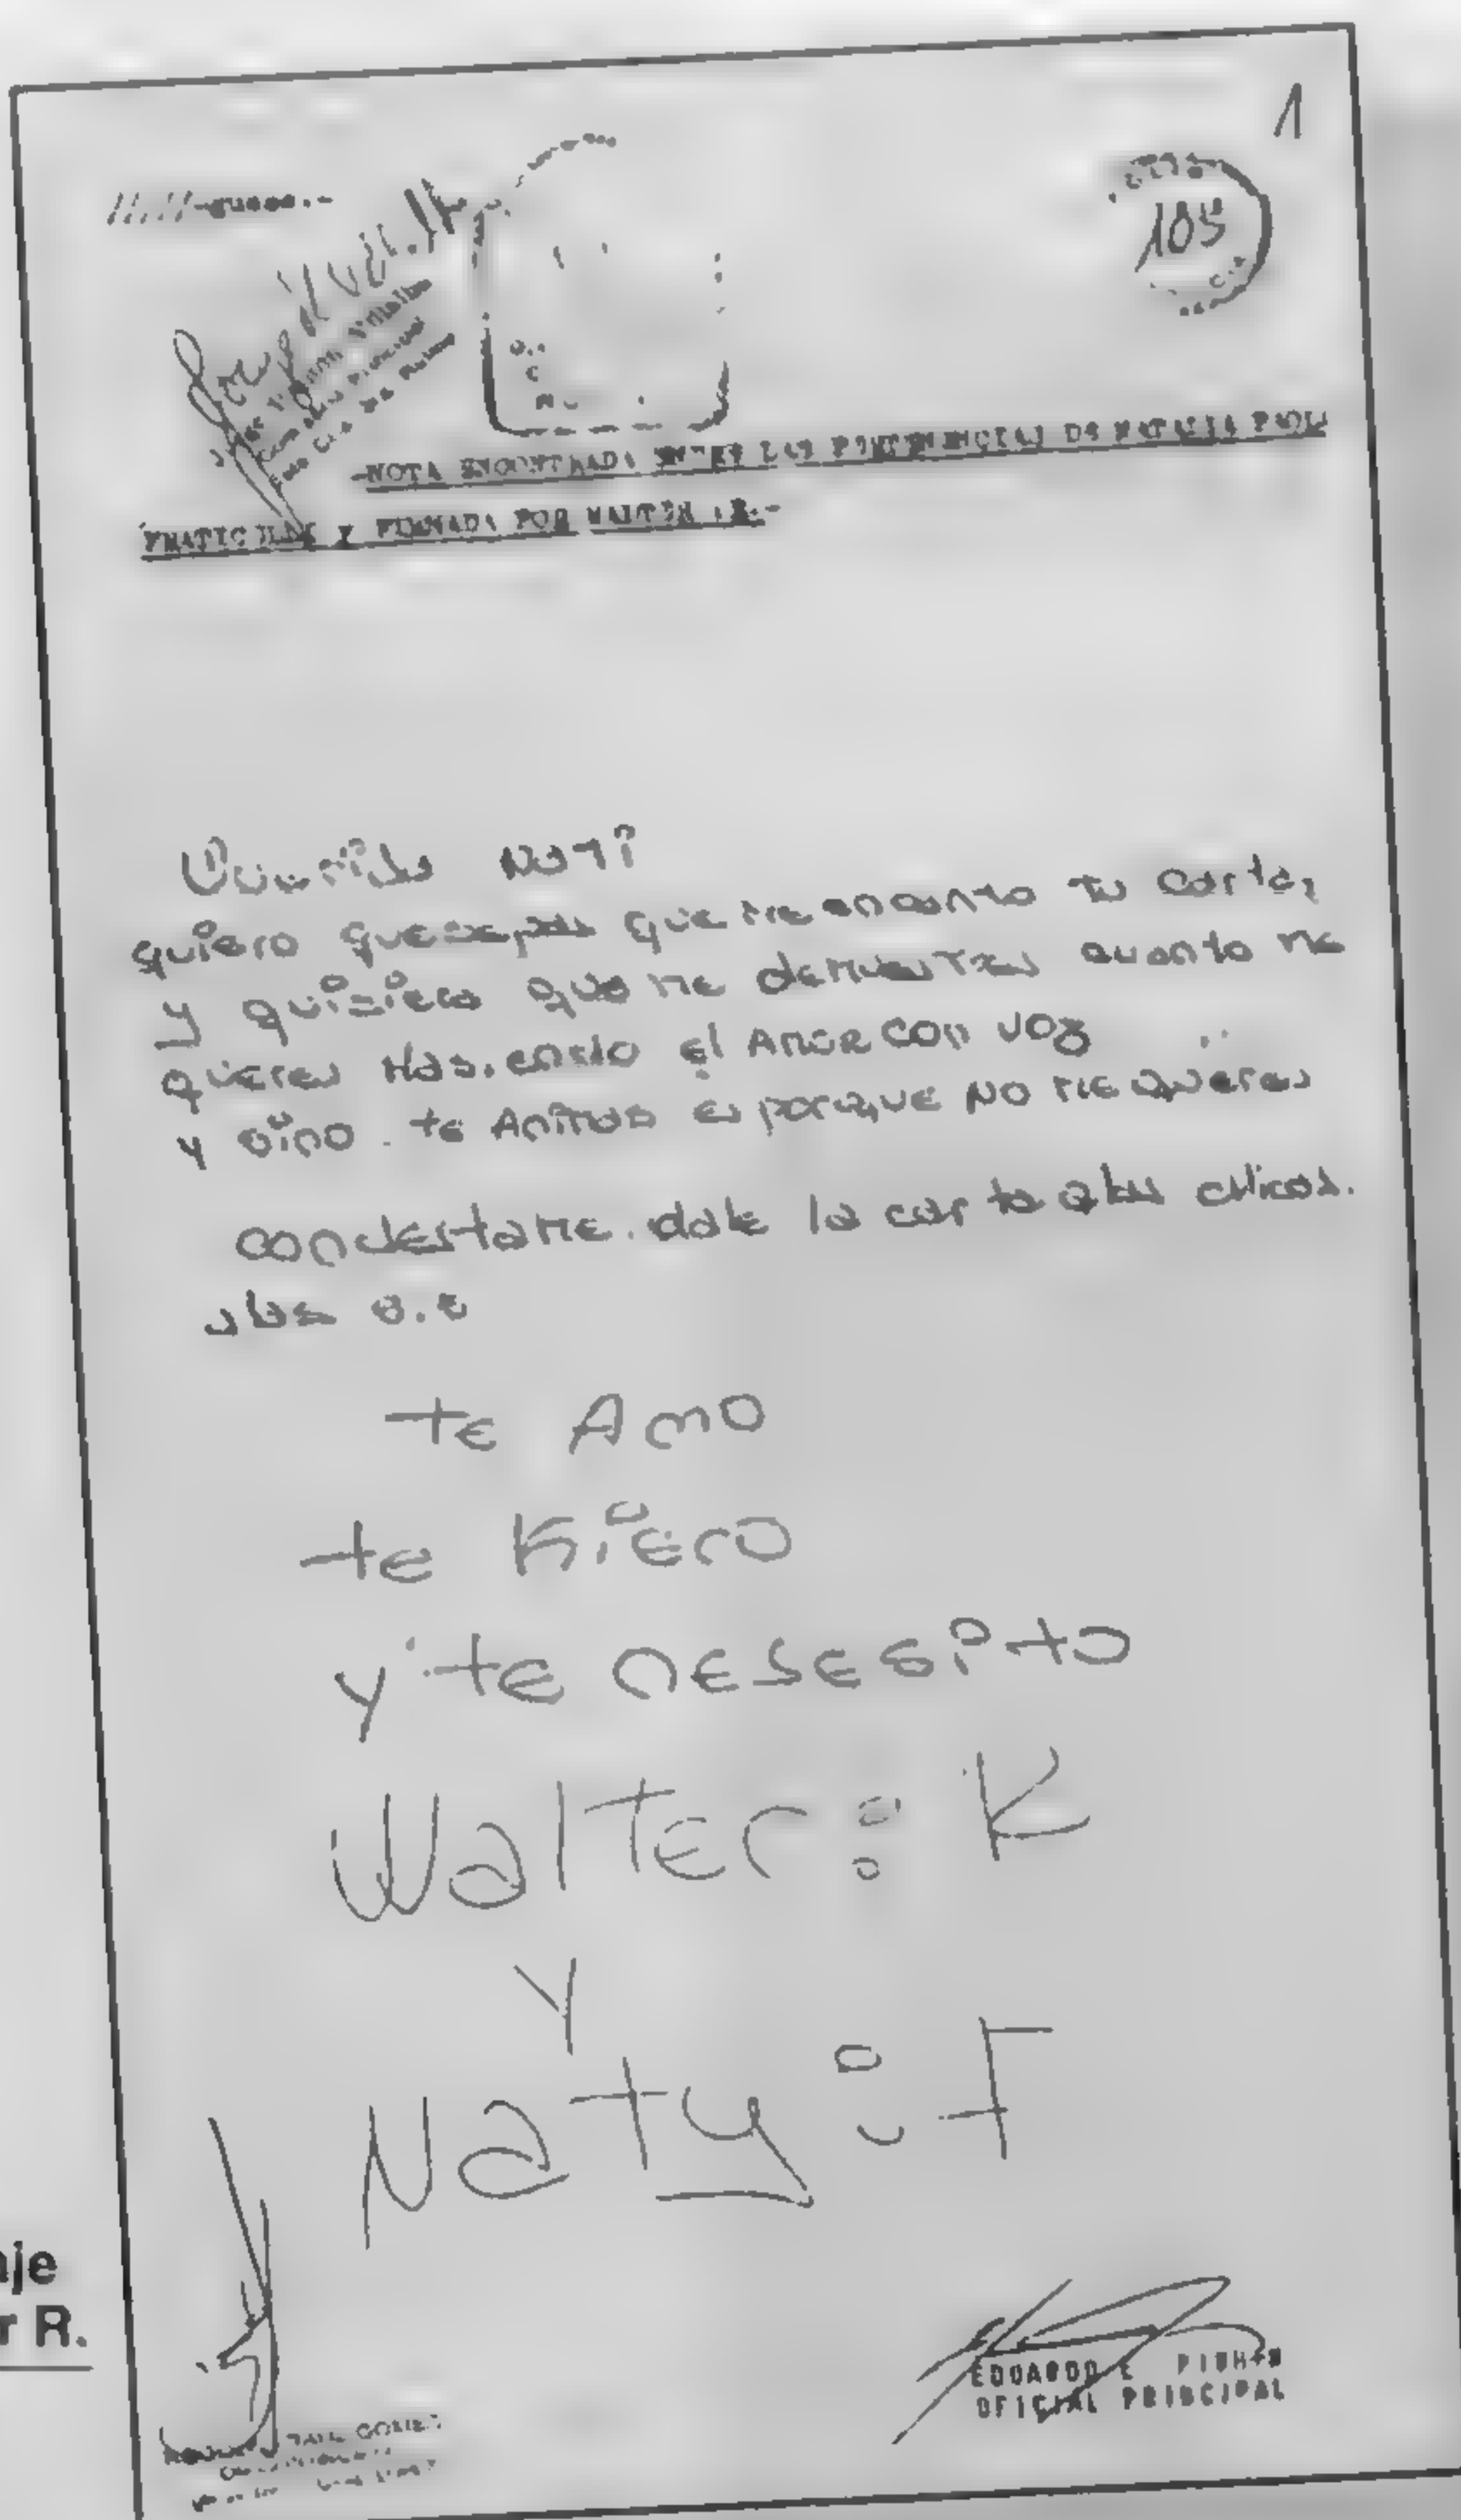 1
105
-NOTA ENCONTRADA ENTRE LAS PERTENENCIAS DE NATALIA
Y FIRMADA POR WALTER .R.-
Querida Nati
quiero que sepas que me encanto tu carta,
y quisiera que me demuestres cuanto me
queres Hasiendo el Amor con voz
y sino te Animas es porque NO me queres
contestame. dale la carta a las chicas.
a las 8.
te Amo
te Kiero
y te nesesito
Walter: R
Y
Naty: F
EDUARDO E
OFICIAL PRINCIPAL
GOMEZ
je
r R.